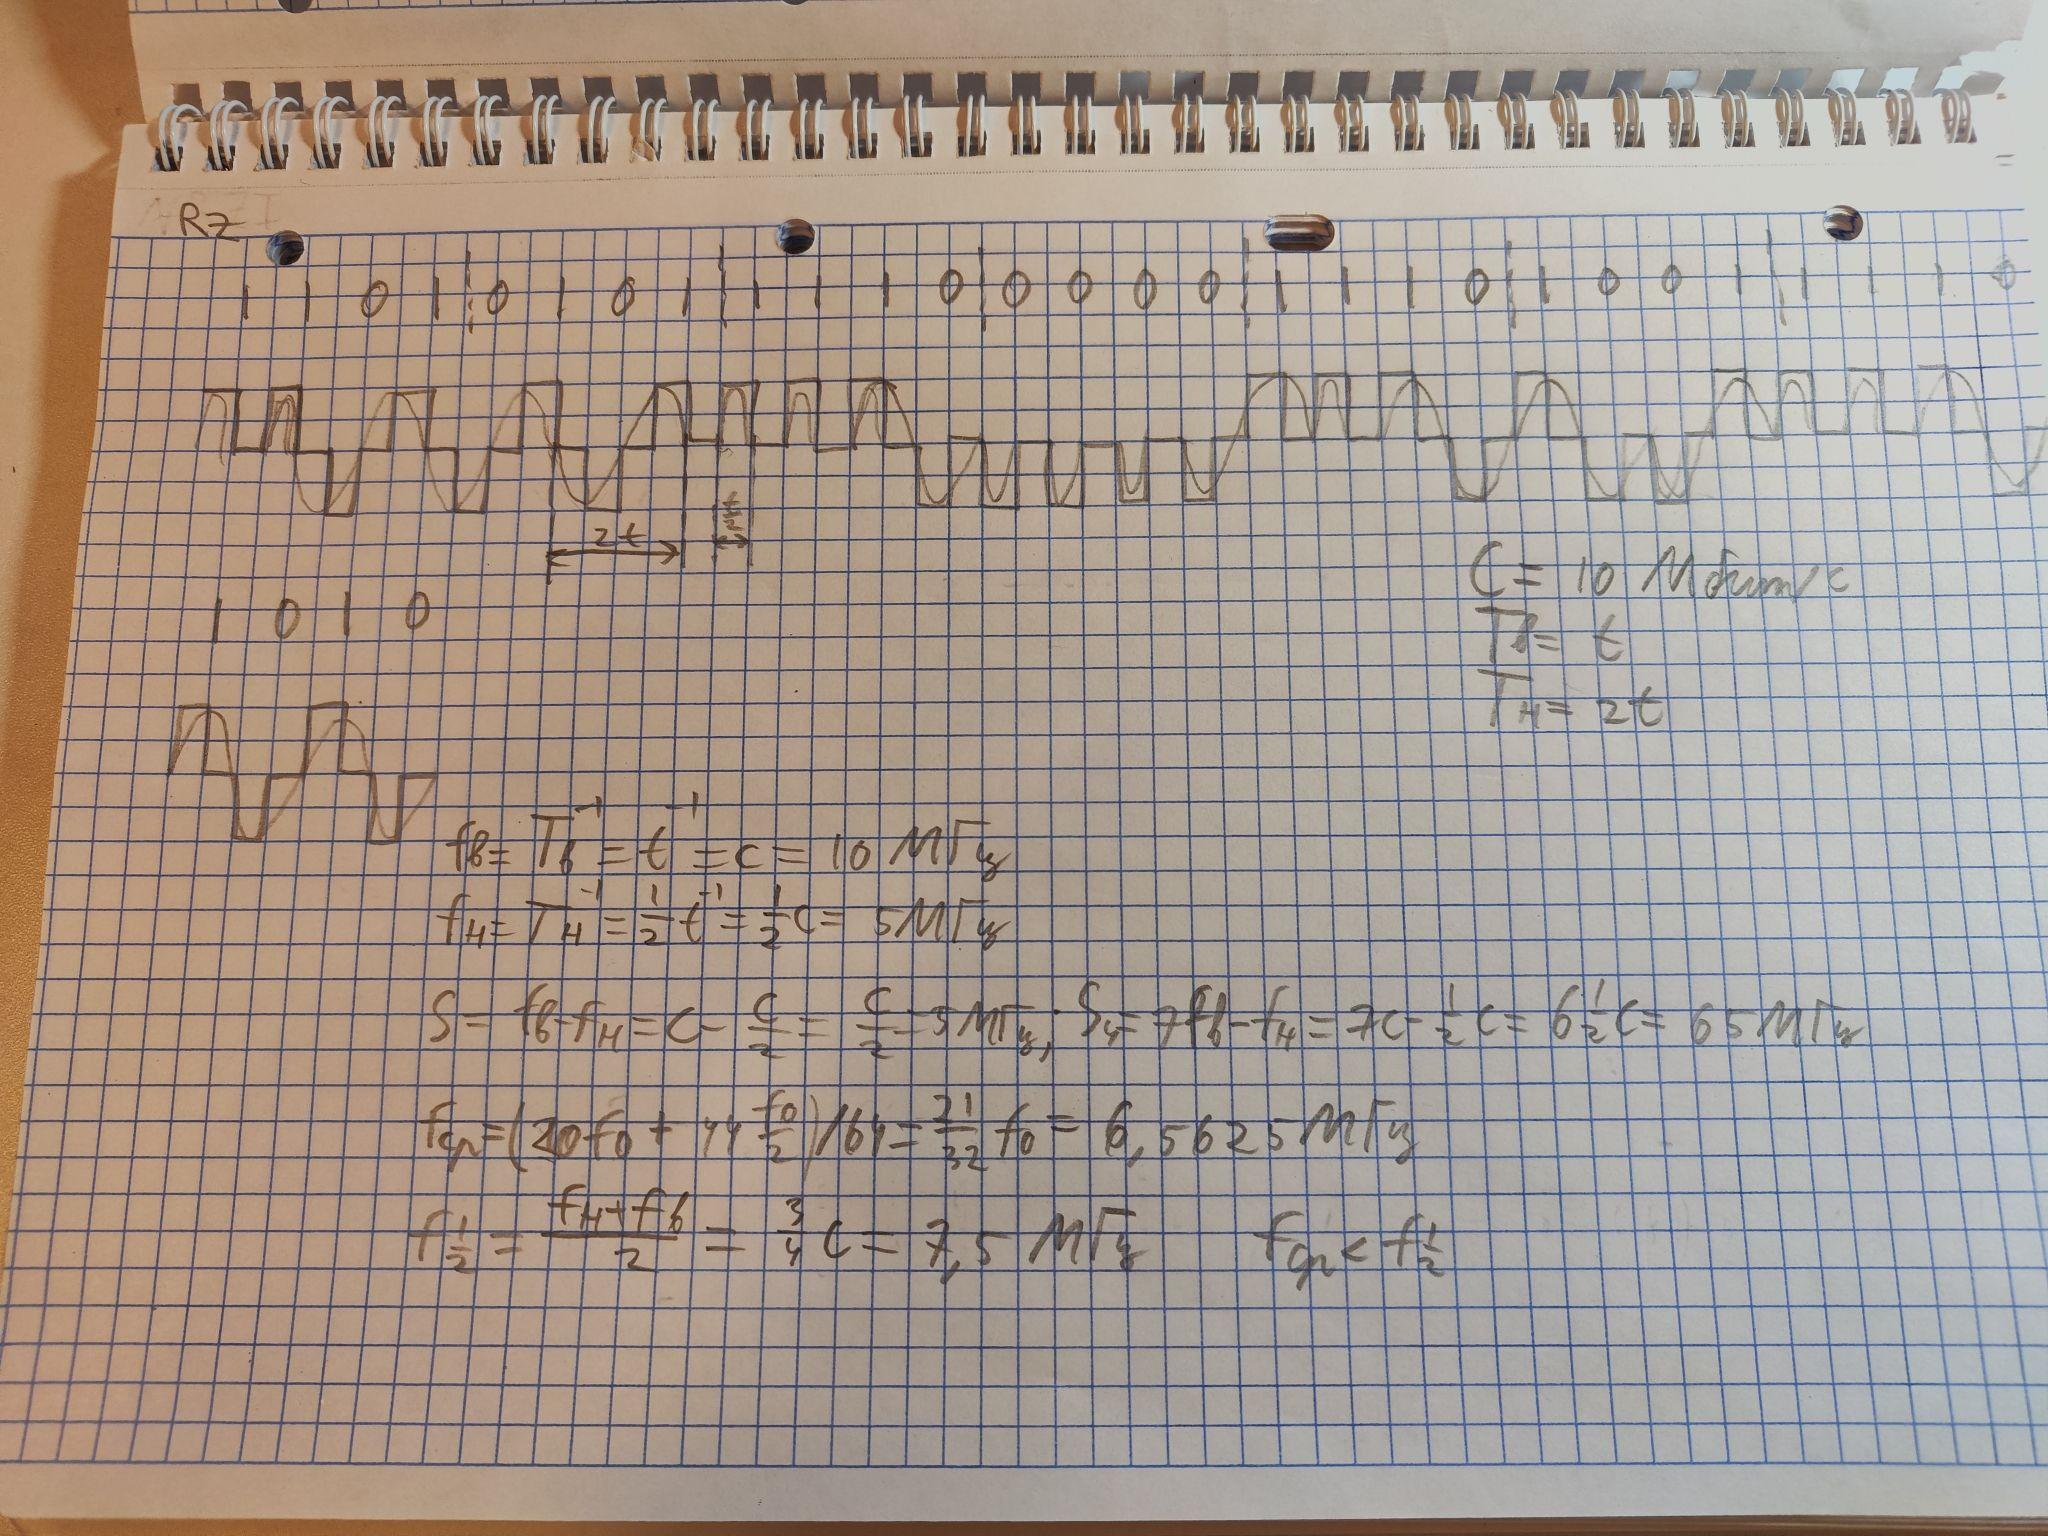 RZ
1 1 0 1 0 1 0 1 1 1 1 0 0 0 0 0 1 1 1 0 1 0 0 1 1 1 1 0
2t
C = 10 Мбит/с
Tв = t
Tн = 2t
1 0 1 0
fв = Tв⁻¹ = t⁻¹ = C = 10 МГц
fн = Tн⁻¹ = 1/2 t⁻¹ = 1/2 C = 5 МГц
S = fв - fн = C - C/2 = C/2 = 5 МГц; S4 = 7fв - fн = 7C - 1/2 C = 6 1/2 C = 65 МГц
fср = (20f0 + 44 f0/2)/64 = 21/32 f0 = 6,5625 МГц
f1/2 = (fн + fв)/2 = 3/4 C = 7,5 МГц fср < f1/2